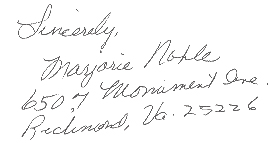 Sincerely,
Marjorie Nohle
6507 Monument Ave.
Richmond, Va. 23226